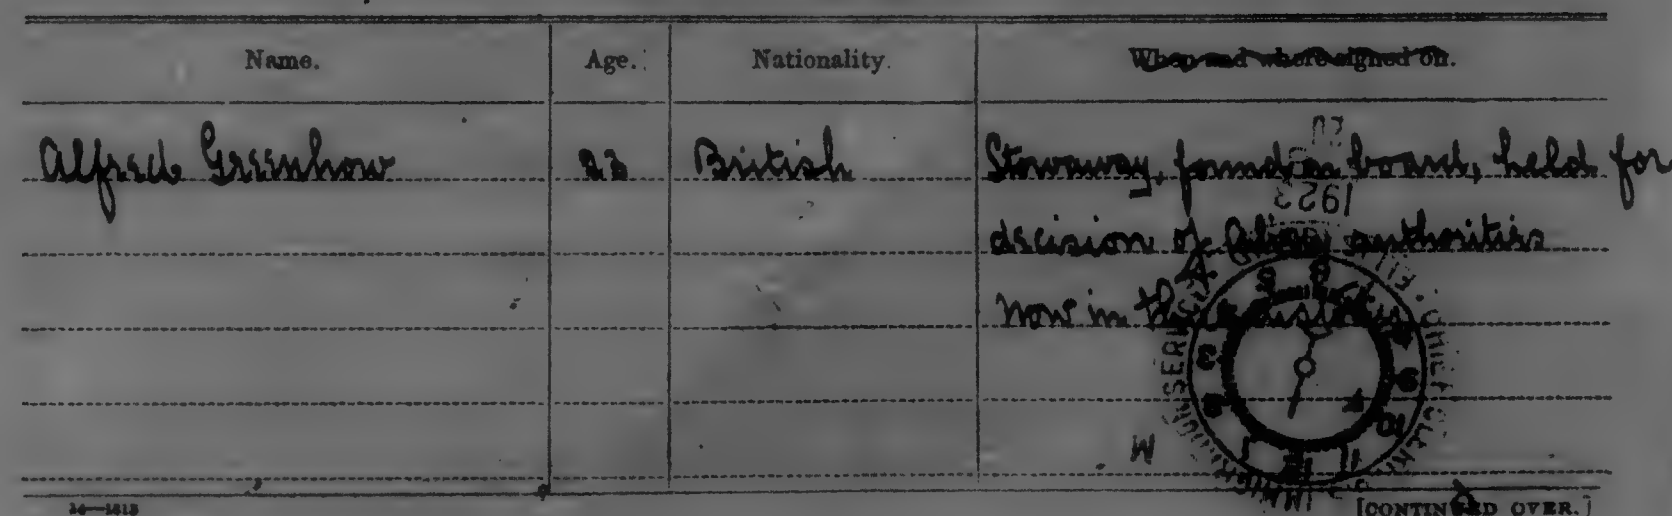 Name. Age. Nationality. When and where signed on.
Alfred Greenhow 23 British Stowaway, found on board, held for
decision of Alien authorities
now in their custody
1923
M
14—1313 [CONTINUED OVER.]